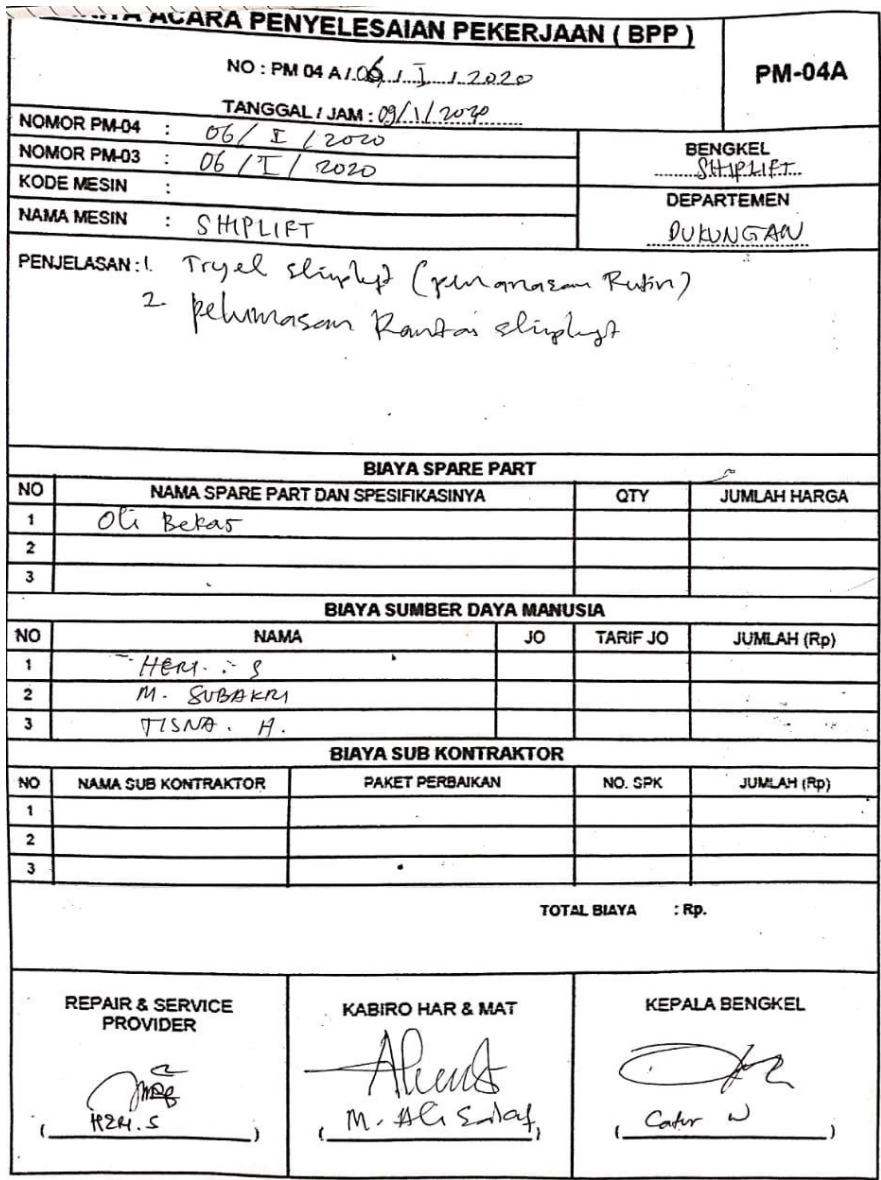 ACARA PENYELESAIAN PEKERJAAN ( BPP )
PM-04A
NO : PM 04 A / 06 / I / 2020
TANGGAL / JAM : 09/1/2020
NOMOR PM-04 : 06/ I / 2020
NOMOR PM-03 : 06 / I / 2020
KODE MESIN :
NAMA MESIN : SHIPLIFT
BENGKEL
SHIPLIFT
DEPARTEMEN
DUKUNGAN
PENJELASAN : 1. Tryel shiplyt (pemanasan Rutin)
2. pelumasan Rantai shiplyt
BIAYA SPARE PART
NO NAMA SPARE PART DAN SPESIFIKASINYA QTY JUMLAH HARGA
1 Oli Bekas
2
3
BIAYA SUMBER DAYA MANUSIA
NO NAMA JO TARIF JO JUMLAH (Rp)
1 HERI. S
2 M. SUBAKRI
3 TISNA. H.
BIAYA SUB KONTRAKTOR
NO NAMA SUB KONTRAKTOR PAKET PERBAIKAN NO. SPK JUMLAH (Rp)
1
2
3
TOTAL BIAYA : Rp.
REPAIR & SERVICE
PROVIDER
KABIRO HAR & MAT
KEPALA BENGKEL
HERI. S
M. Ali
Catur W